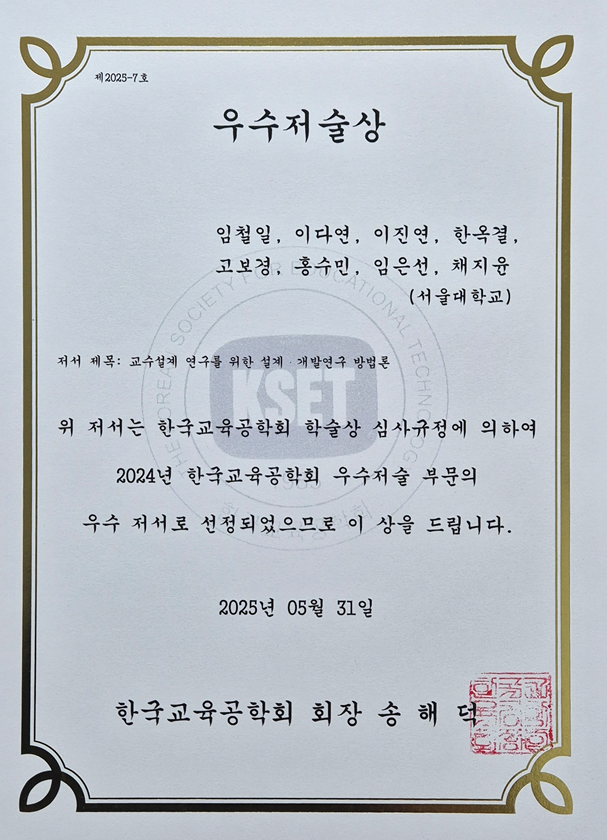 제2025-7호
우수저술상
임철일, 이다연, 이진연, 한옥결,
고보경, 홍수민, 임은선, 채지윤
(서울대학교)
저서 제목: 교수설계 연구를 위한 설계·개발연구 방법론
위 저서는 한국교육공학회 학술상 심사규정에 의하여
2024년 한국교육공학회 우수저술 부문의
우수 저서로 선정되었으므로 이 상을 드립니다.
2025년 05월 31일
한국교육공학회 회장 송 해 덕
THE KOREAN SOCIETY FOR EDUCATIONAL TECHNOLOGY
KSET